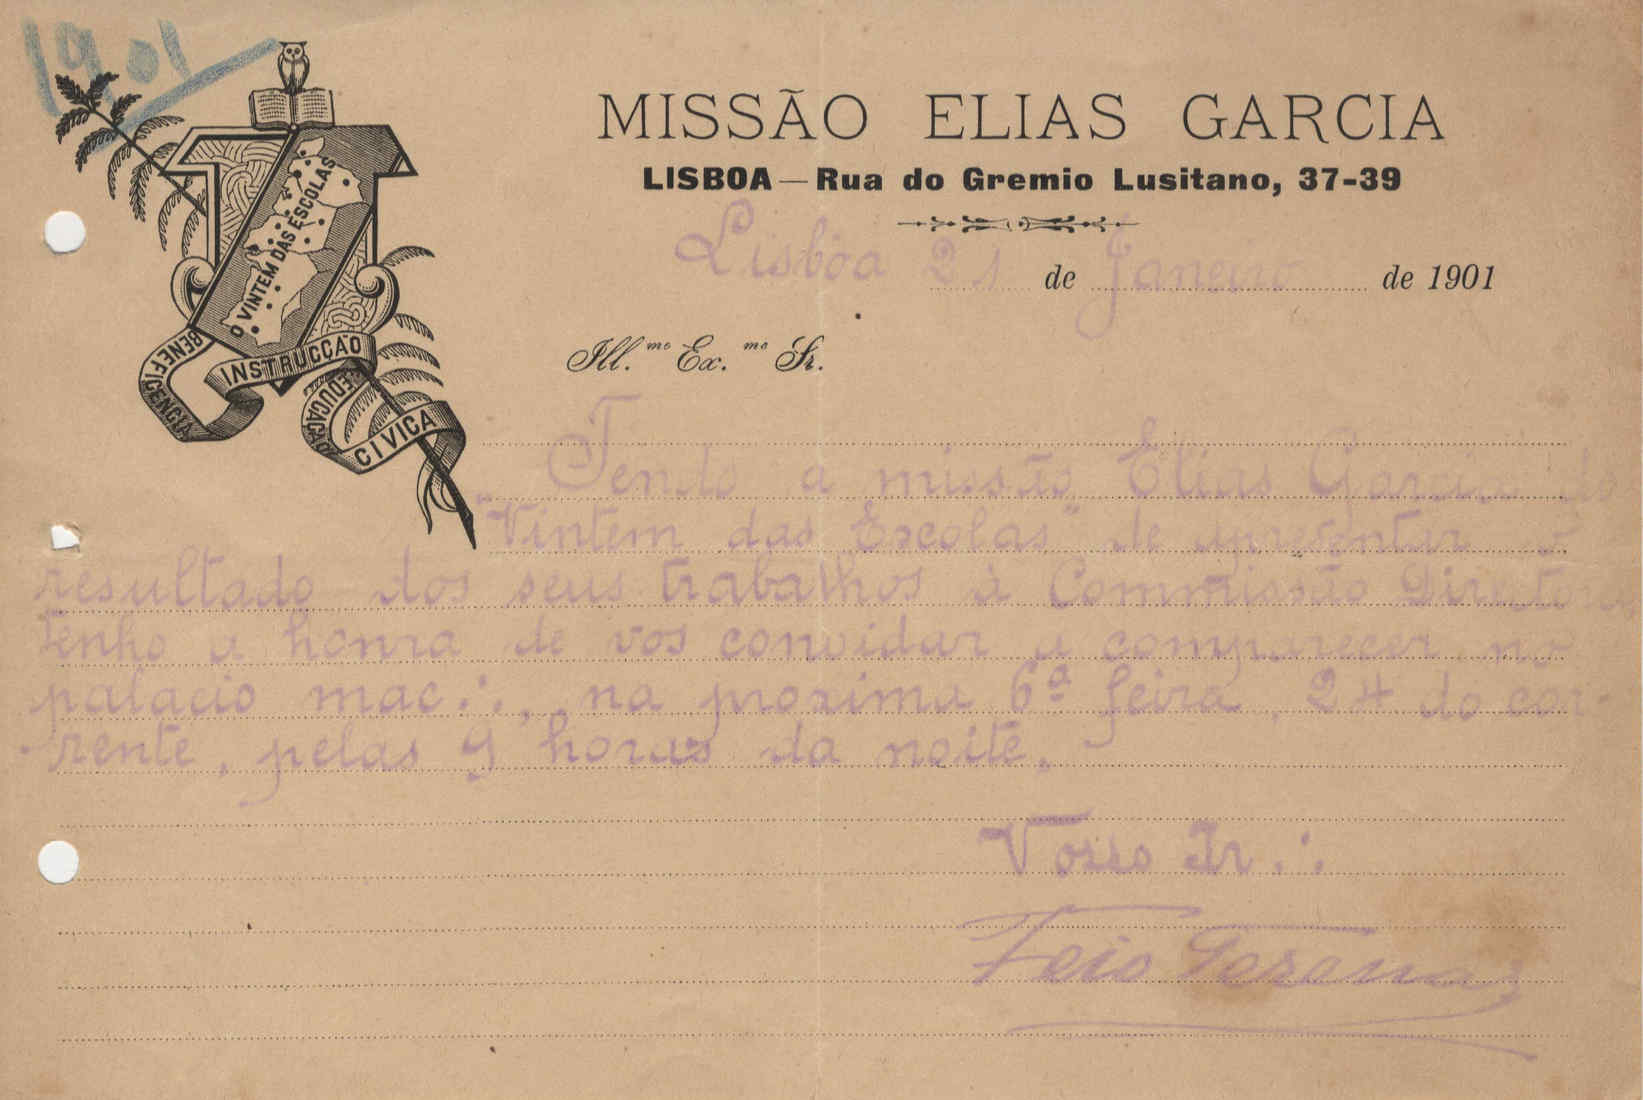 1901
MISSÃO ELIAS GARCIA
LISBOA — Rua do Gremio Lusitano, 37-39
Lisbôa 21 de Janeiro de 1901
O VINTEM DAS ESCOLAS
BENEFICENCIA
INSTRUCÇÃO
EDUCAÇÃO
CIVICA
Ill.mo Ex.mo Sr.
Tendo a missão Elias Garcia do
"Vintem das Escolas" de apresentar o
resultado dos seus trabalhos á Commissão Directora
tenho a honra de vos convidar a comparecer no
palacio mac∴, na proxima 6ª feira, 24 do cor-
rente, pelas 9 horas da noite.
Vosso Ir∴
Feio Terenas